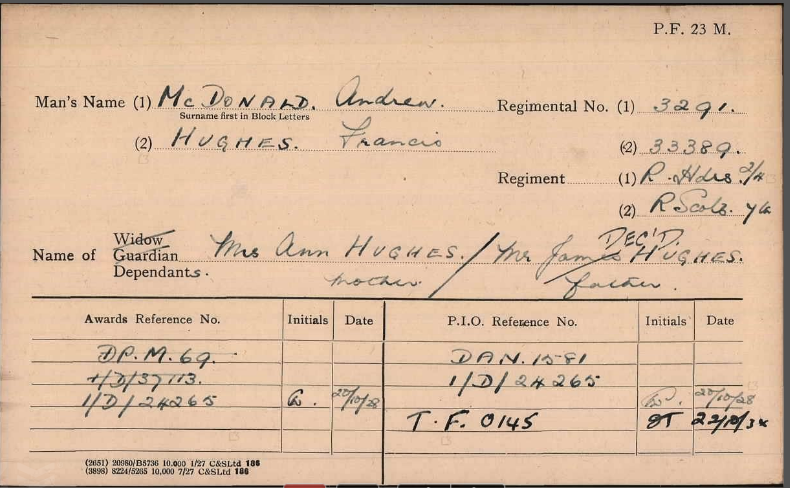 P.F. 23 M.
Man's Name (1) McDONALD. Andrew. Regimental No. (1) 3291.
Surname first in Block Letters
(2) HUGHES. Francis (2) 33389.
Regment (1) R. Hdrs 2/4
(2) R Scots.
DEC'D.
Widow
Name of Guardian Mrs Ann HUGHES. / Mr James HUGHES.
Dependants. mother. father.
Awards Reference No. Initials Date P.I.O. Reference No. Initials Date
D.P.M. 69. DAN. 1581
1/D/37113. 1/D/24265
1/D/24265 20/10/28 20/10/28
T.F. 0145
(2651) 20980/B5736 10.000 1/27 C&SLtd 186
(3898) 8224/5265 10,000 7/27 C&SLtd 186